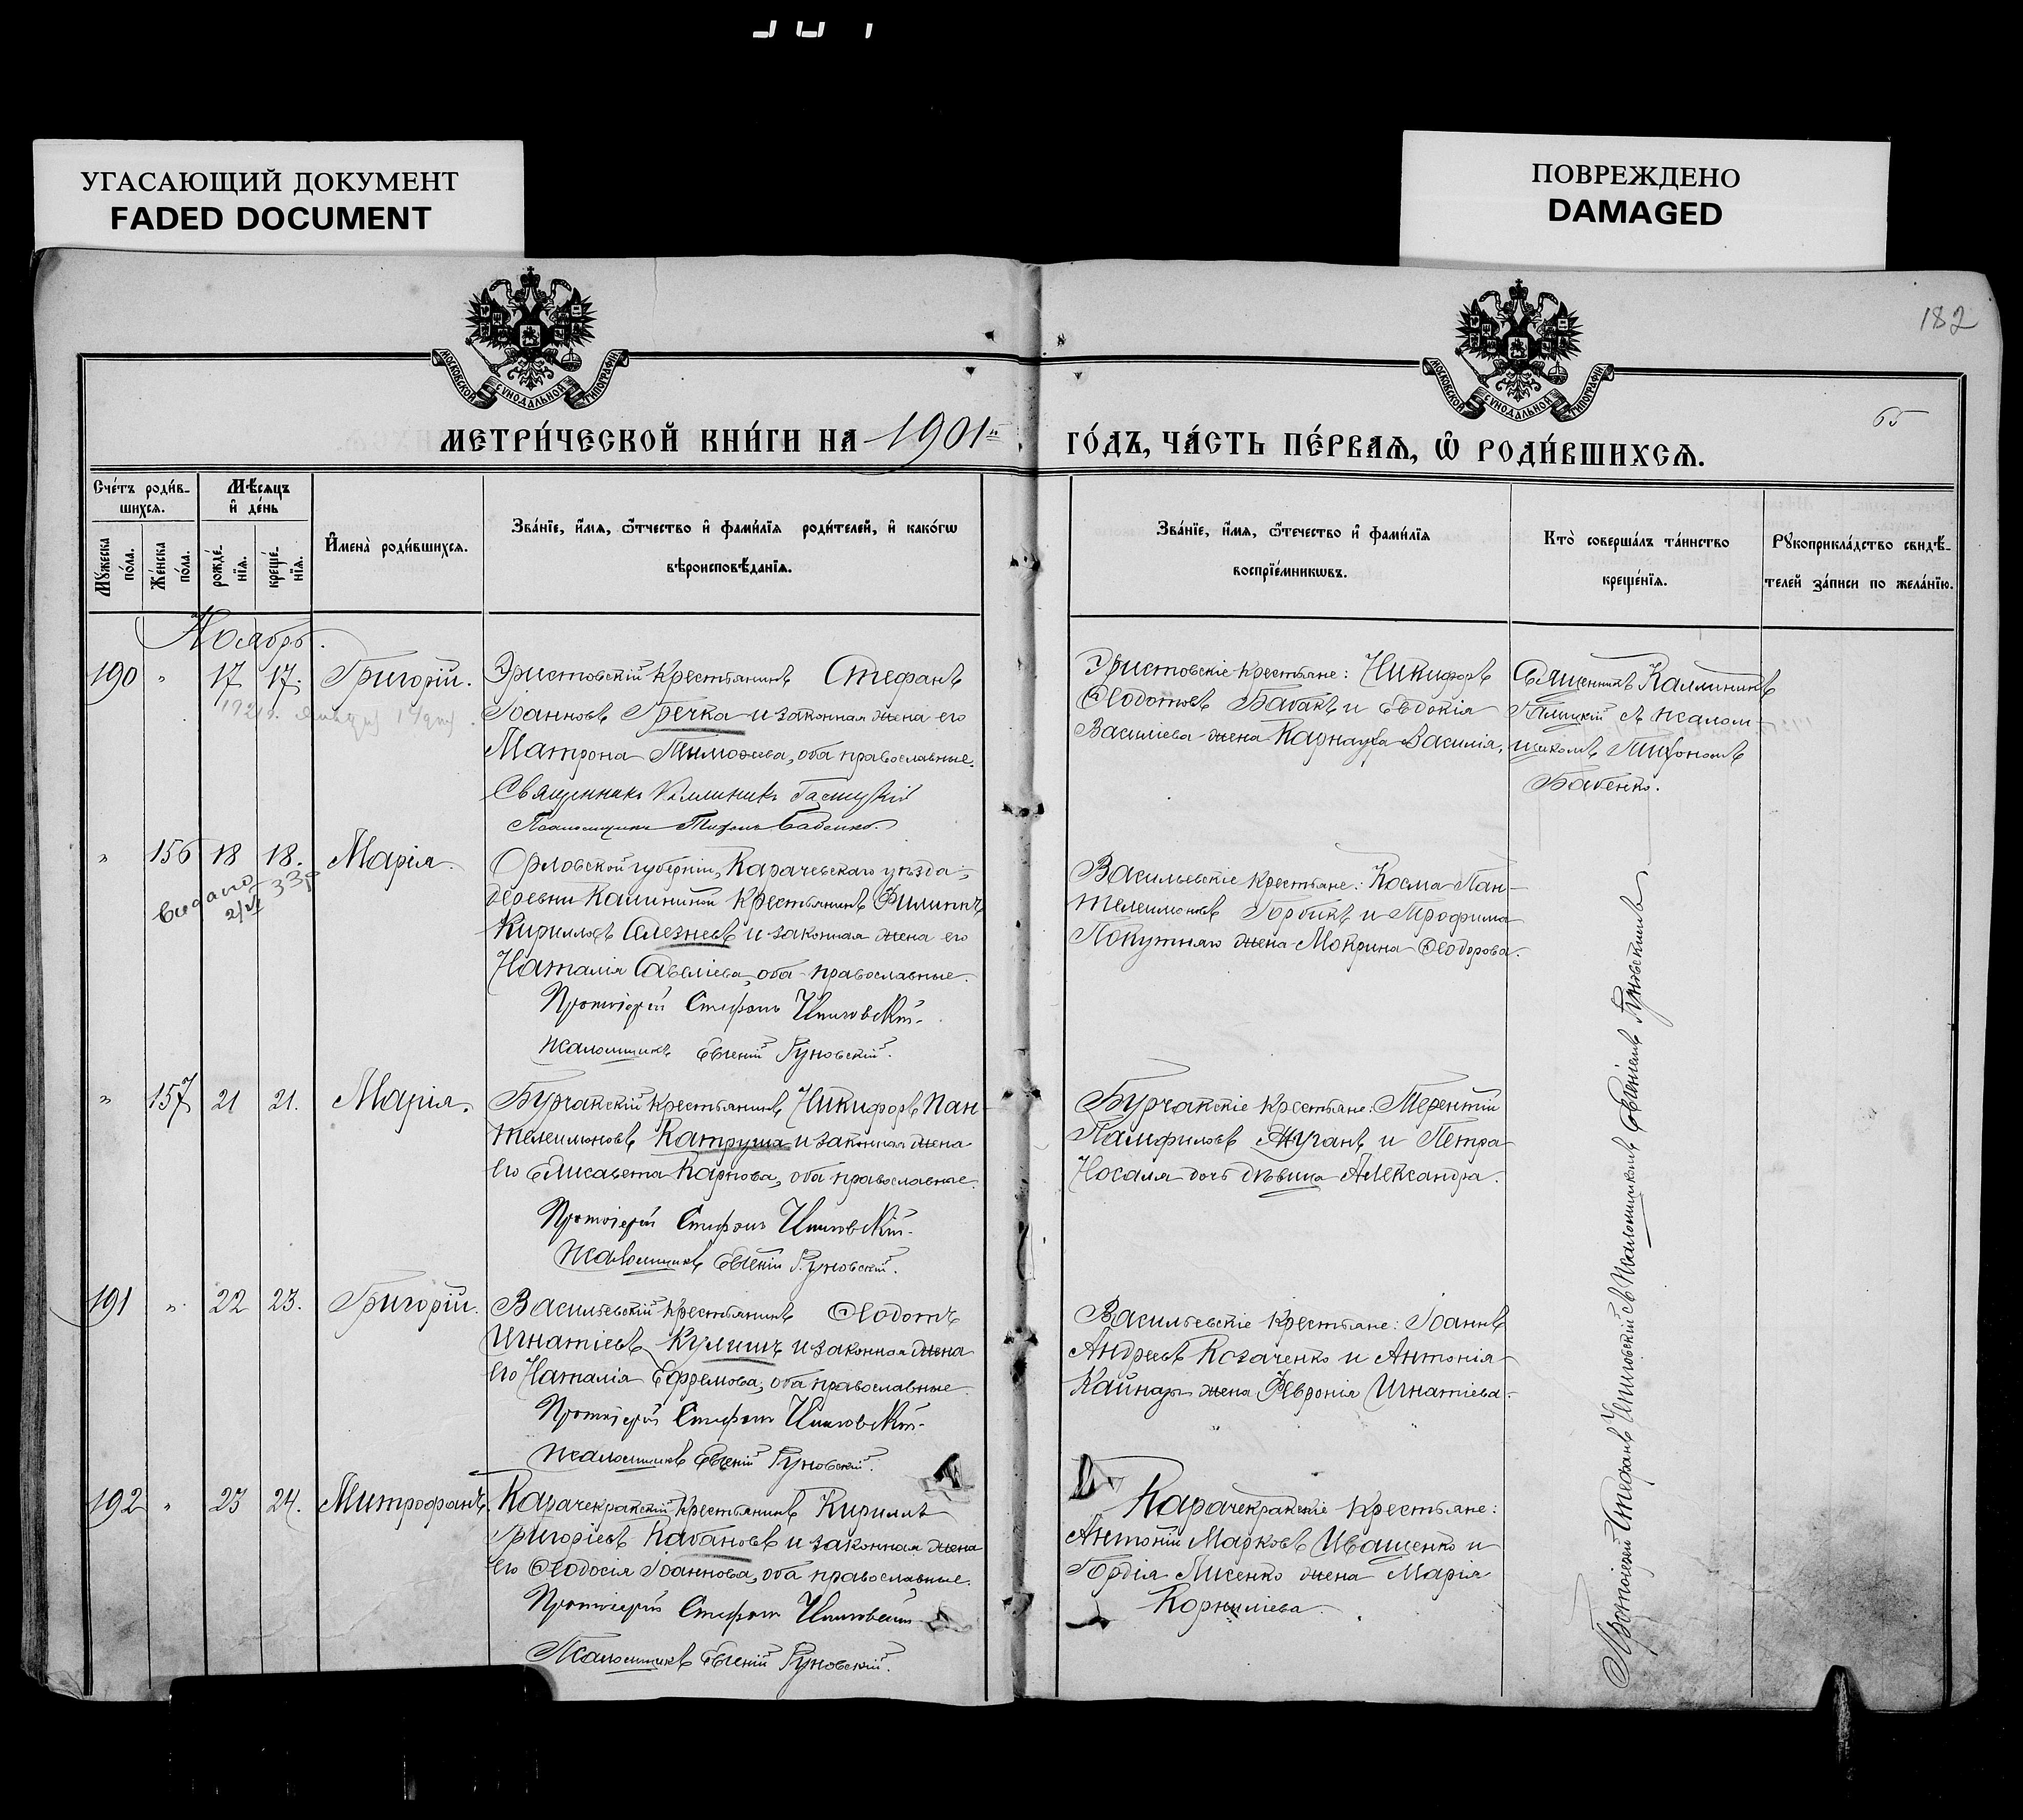 УГАСАЮЩИЙ ДОКУМЕНТ
FADED DOCUMENT
ПОВРЕЖДЕНО
DAMAGED
182
65
МОСКОВСКОЙ СУНОДАЛЬНОЙ ТИПОГРАФІИ
МОСКОВСКОЙ СУНОДАЛЬНОЙ ТИПОГРАФІИ
МЕТРИ́ЧЕСКОЙ КНИ́ГИ НА 1901й ГО́ДЪ, ЧА́СТЬ ПЕ́РВАѦ, Ѡ РОДИ́ВШИХСѦ.
Сче́тъ роди́в-
шихсѧ.
Мѣ́сѧцъ
и҆ де́нь
Мꙋ́жеска по́ла.
Же́нска по́ла.
рожде́-нїѧ.
креще́-нїѧ.
И҆мена̀ роди́вшихсѧ.
Зва́нїе, и҆́мѧ, ѻ҆́тчество и҆ фами́лїѧ роди́телей, и҆ како́гѡ
вѣроисповѣ́данїѧ.
Зва́нїе, и҆́мѧ, ѻ҆́течество и҆ фами́лїѧ
воспрїе́мникѡвъ.
Кто̀ соверша́лъ та́инство
креще́нїѧ.
Рꙋкоприкла́дство свидѣ́-
телей за́писи по жела́нїю.
Ноябрь.
190 " 17 17. Григорій.
Эристовскій крестьянинъ Стефанъ
Іоанновъ Гречка и законная жена его
Матрона Тимоѳеева, оба православные.
Священникъ Каллиникъ Галицкій
Псаломщикъ Тихонъ Бабенко.
Эристовскіе крестьяне: Никифоръ
Ѳеодотовъ Бабакъ и Евдокія
Василіева жена Карнауха Василія.
Священникъ Каллиникъ
Галицкій съ псалом-
щикомъ Тихономъ
Бабенко.
" 156 18 18. Марія.
Выдано
2/VI 33р
Орловской губерніи, Карачевскаго уѣзда,
деревни Калининой крестьянинъ Филиппъ
Кирилловъ Селезневъ и законная жена его
Наталія Савеліева, оба православные.
Протоіерей Стефанъ
Псаломщикъ Евгеній Гуновскій.
Васильевскіе крестьяне: Косма Пан-
телеимоновъ Горбикъ и Трофима
Попутняго жена Мокрина Ѳеодорова.
" 157 21 21. Марія.
Бурчакскій крестьянинъ Никифоръ Пан-
телеимоновъ Катруша и законная жена
его Елисавета Карпова, оба православные.
Протоіерей Стефанъ
Псаломщикъ Евгеній Гуновскій.
Бурчакскіе крестьяне: Терентій
Памфиловъ Жуганъ и Петра
Носаля дочь дѣвица Александра.
191 " 22 23. Григорій.
Васильевскій крестьянинъ Ѳеодотъ
Игнатіевъ Кулишъ и законная жена
его Наталія Ефремова, оба православные.
Протоіерей Стефанъ
Псаломщикъ Евгеній Гуновскій.
Васильевскіе крестьяне: Іоаннъ
Андреевъ Козаченко и Антонія
Кайнары жена Февронія Игнатіева.
192 " 23 24. Митрофанъ
Карачекракскій крестьянинъ Кириллъ
Григоріевъ Кабановъ и законная жена
его Ѳеодосія Іоаннова, оба православные.
Протоіерей Стефанъ
Псаломщикъ Евгеній Гуновскій.
Карачекракскіе крестьяне:
Антоній Марковъ Иващенко и
Гордія Лисенко жена Марія
Корниліева.
Протоіерей Стефанъ съ псаломщикомъ Евгеніемъ Гуновскимъ